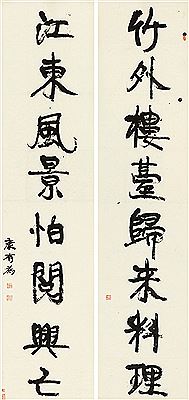 竹外樓臺歸来料理
江東風景怕問興亡
康有為